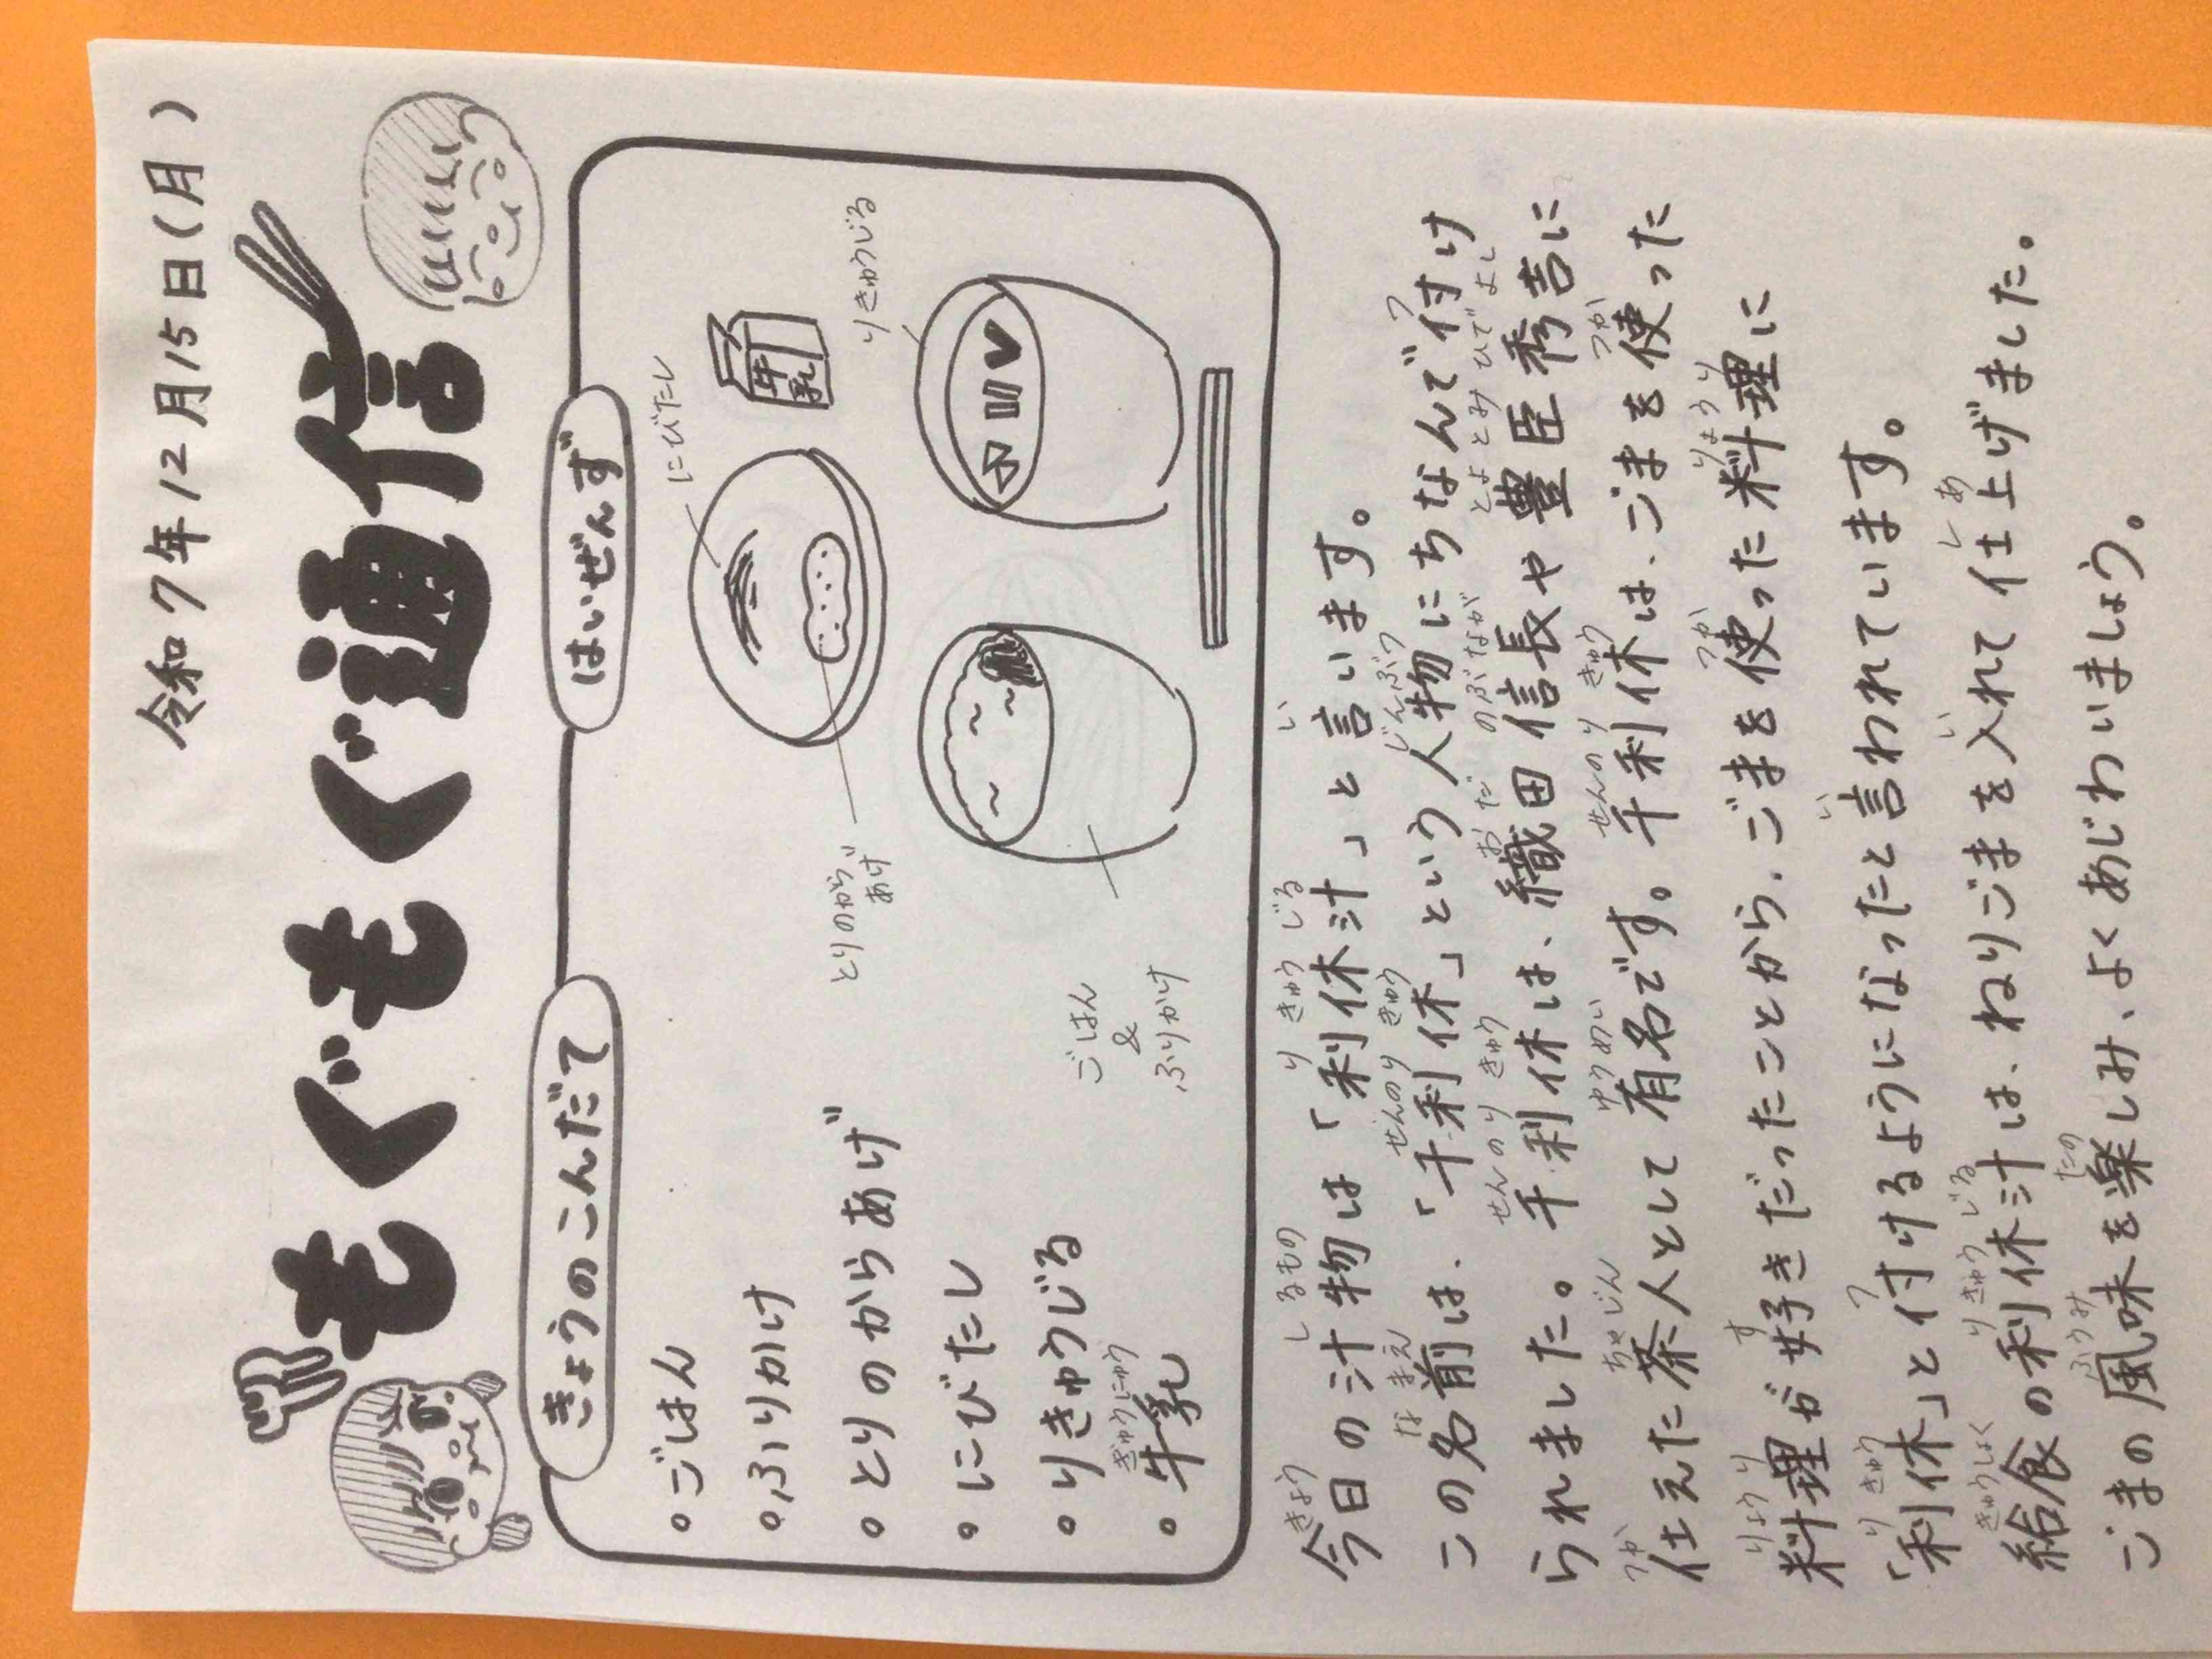 令和7年12月15日(月)
もぐもぐ通信
きょうのこんだて
はいぜんず
。ごはん
。ふりかけ
。とりのからあげ
。にびたし
。りきゅうじる
。牛乳
ぎゅうにゅう
にびたし
牛乳
りきゅうじる
とりのから
あげ
ごはん
&
ふりかけ
今日の汁物は「利休汁」と言います。
この名前は、「千利休」という人物にちなんで付け
られました。千利休は、織田信長や豊臣秀吉に
仕えた茶人として有名です。千利休は、ごまを使った
料理が好きだったことから、ごまを使った料理に
「利休」と付けるようになったと言われています。
給食の利休汁は、ねりごまを入れて仕上げました。
ごまの風味を楽しみ、よくあじわいましょう。